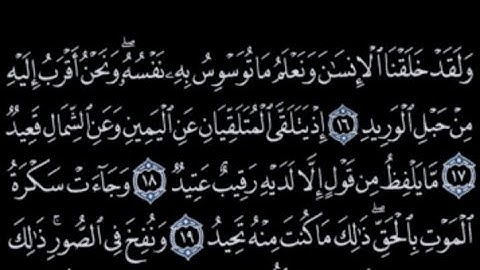 وَلَقَدْ خَلَقْنَا ٱلْإِنسَٰنَ وَنَعْلَمُ مَا تُوَسْوِسُ بِهِۦ نَفْسُهُۥ ۖ وَنَحْنُ أَقْرَبُ إِلَيْهِ
مِنْ حَبْلِ ٱلْوَرِيدِ ١٦ إِذْ يَتَلَقَّى ٱلْمُتَلَقِّيَانِ عَنِ ٱلْيَمِينِ وَعَنِ ٱلشِّمَالِ قَعِيدٌ
١٧ مَّا يَلْفِظُ مِن قَوْلٍ إِلَّا لَدَيْهِ رَقِيبٌ عَتِيدٌ ١٨ وَجَآءَتْ سَكْرَةُ
ٱلْمَوْتِ بِٱلْحَقِّ ۖ ذَٰلِكَ مَا كُنتَ مِنْهُ تَحِيدُ ١٩ وَنُفِخَ فِى ٱلصُّورِ ۚ ذَٰلِكَ